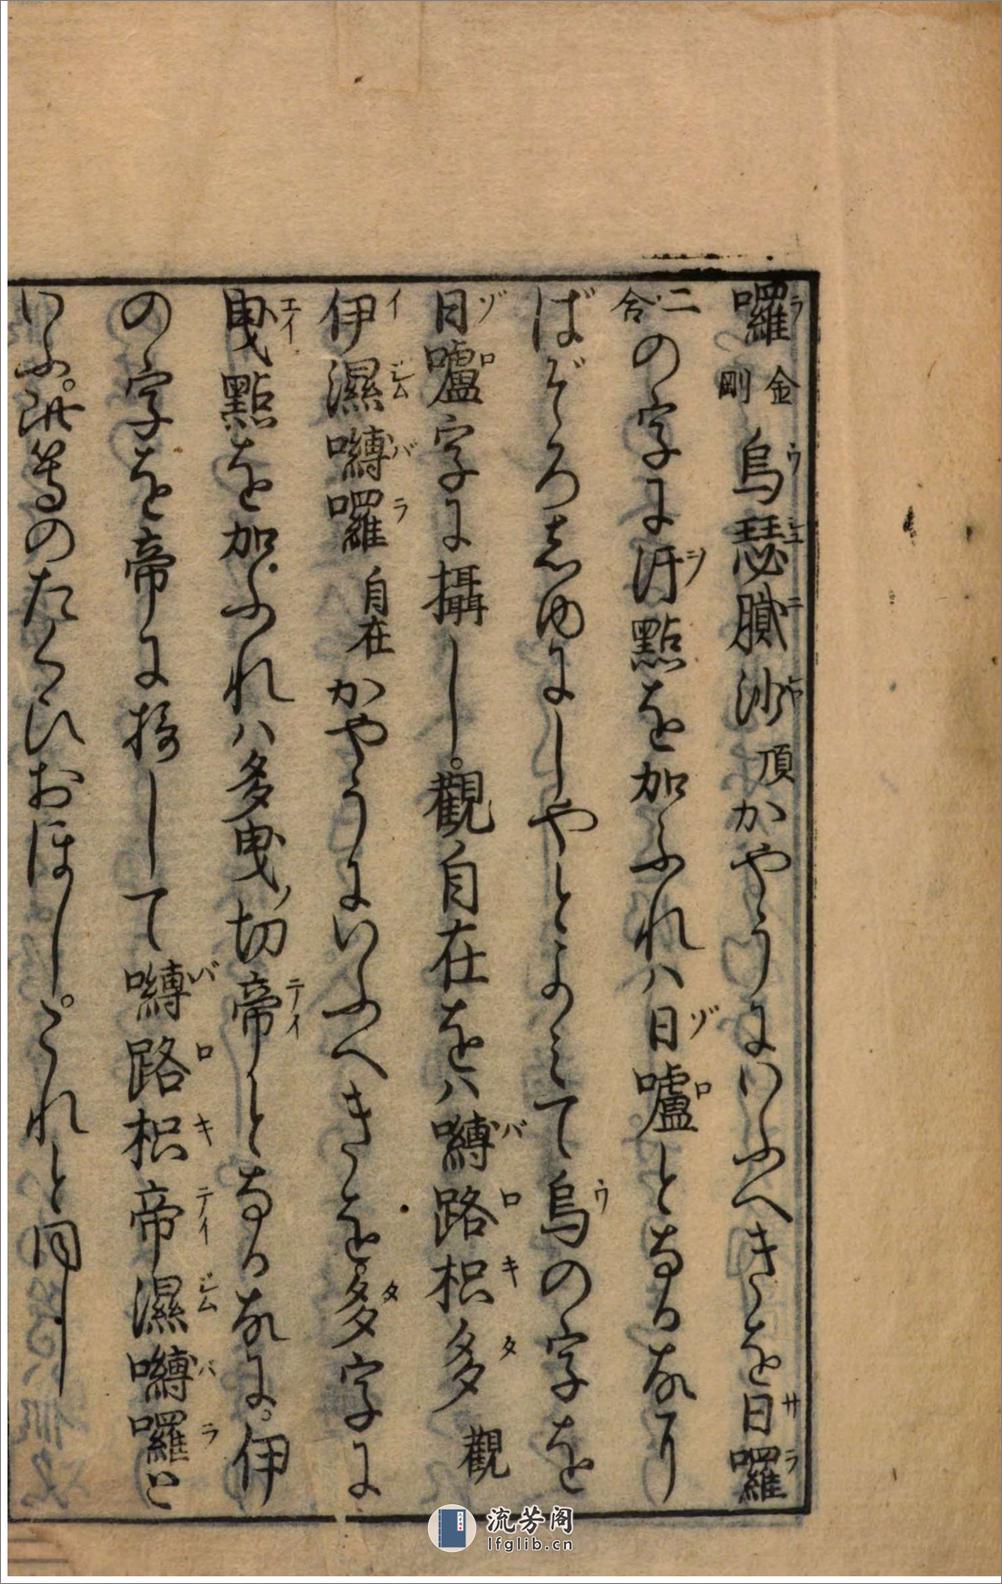 囉金剛烏瑟膩沙頂かやうにいふへきを日囉
二合の字に汙點を加ふれハ日嚧となるなり
ばぞろしゆにしやとよミて烏の字を
日嚧字に攝し。觀自在をハ嚩路枳多觀
伊濕嚩囉自在かやうにいふへきを多字に
曳點を加ふれハ多曳ノ切帝となる故に。伊
の字を帝に接して嚩路枳帝濕嚩囉と
いふ。此等のたくひおほし。これと同し